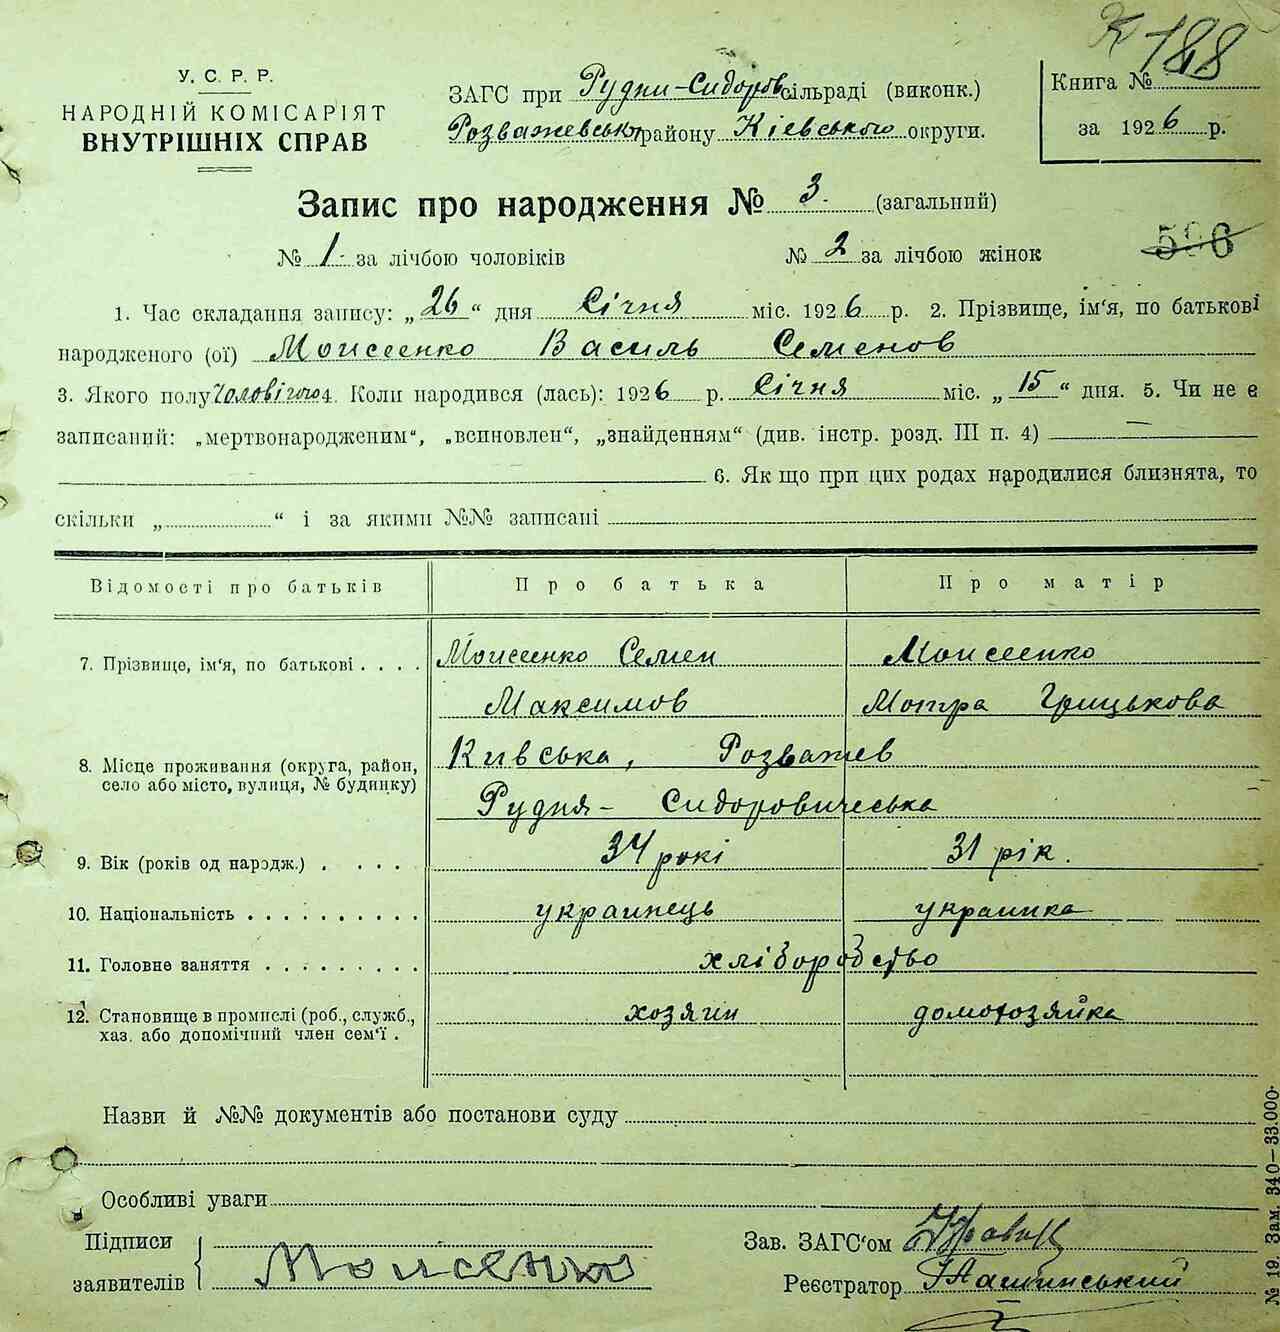 К 188
У. С. Р. Р.
НАРОДНІЙ КОМІСАРІЯТ
ВНУТРІШНІХ СПРАВ
ЗАГС при Рудни-Сидоров сільраді (виконк.)
Розважевськ району Кіевського округи.
Книга №
за 1926 р.
Запис про народження № 3. (загальний)
№ 1 за лічбою чоловіків № 2 за лічбою жінок
596
1. Час складання запису: „26“ дня Січня міс. 1926 р. 2. Прізвище, ім‘я, по батькові
народженого (ої) Моисеенко Василь Семенов
3. Якого полу Чоловічого 4. Коли народився (лась): 1926 р. Січня міс. „15“ дня. 5. Чи не є
записаний: „мертвонародженим“, „всиновлен“, „знайденням“ (див. інстр. розд. III п. 4) —
6. Як що при цих родах народилися близнята, то
скільки „ “ і за якими №№ записані
Відомості про батьків Про батька Про матір
7. Прізвище, ім‘я, по батькові . . . . Моисеенко Семен Моисеенко
Максимов Мотра Грицькова
8. Місце проживання (округа, район, село або місто, вулиця, № будинку) Київська, Розважев
Рудня- Сидоровичеська
9. Вік (років од народж.) . . . . 34 рокі 31 рік.
10. Національність . . . . . . . . . . украинець украинка
11. Головне заняття . . . . . . . . . хліборобство
12. Становище в промислі (роб., служб., хозяин домохозяйка
хаз. або допомічний член сем‘ї .
Назви й №№ документів або постанови суду
Особливі уваги
Підписи
заявителів Моисенко
Зав. ЗАГС‘ом
Реєстратор
№ 19. Зам. 340—33.000.